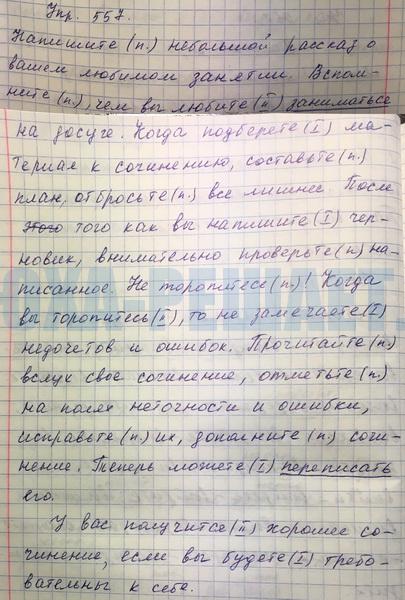 Упр. 557.
Напишите (п.) небольшой рассказ о
вашем любимом занятии. Вспом-
ните (п.), чем вы любите ( II ) заниматься
на досуге. Когда подберете (I) ма-
териал к сочинению, составьте (п.)
план, отбросьте (п.) все лишнее. После
этого того как вы напишите (I) чер-
новик, внимательно проверьте (п) на-
писанное. Не торопитесь (п.)! Когда
вы торопитесь (II), то не замечаете (I)
недочетов и ошибок. Прочитайте (п.)
вслух свое сочинение, отметьте (п.)
на полях неточности и ошибки,
исправьте (п.) их, дополните (п.) сочи-
нение. Теперь можете (I) переписать
его.
У вас получится (II) хорошее со-
чинение, если вы будете (I) требо-
вательны к себе.